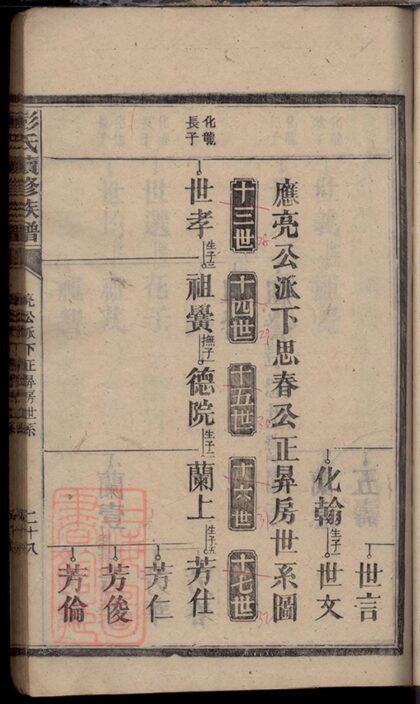 世言
化翰 生子二 世文
應亮公派下思春公正昇房世系圖
十三世 十四世 十五世 十六世 十七世
化龍
長子
世孝 生子 祖釁 撫子一 德院 生子一 蘭上 生子五 芳仕
芳仁
芳俊
芳倫
彭氏續修族譜
亮公派下正昇房世系
二十八